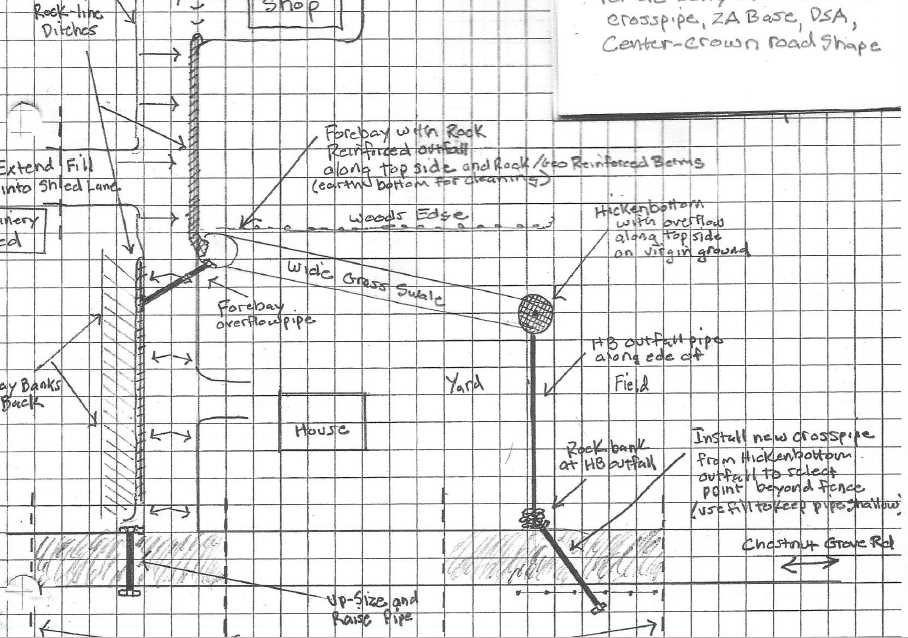 Shop
Rock-line
Ditches
crosspipe, 2A Base, DSA,
Center-crown road Shape
Forebay with Rock
Reinforced outfall
along top side and Rock/Geo Reinforced Berms
(earth bottom for cleaning)
Extend Fill
into Shed Lane
Woods Edge
Hickenbottom
with overflow
along top side
on virgin ground
Wide Grass Swale
Forebay
overflow pipe
HB outfall pipe
along ede of
Field
Yard
Banks
Back
House
Rock bank
at HB outfall
Install new crosspipe
from Hickenbottom
outfall to select
point beyond fence
(use fill to keep pipe shallow)
Chestnut Grove Rd
Up-Size and
Raise Pipe